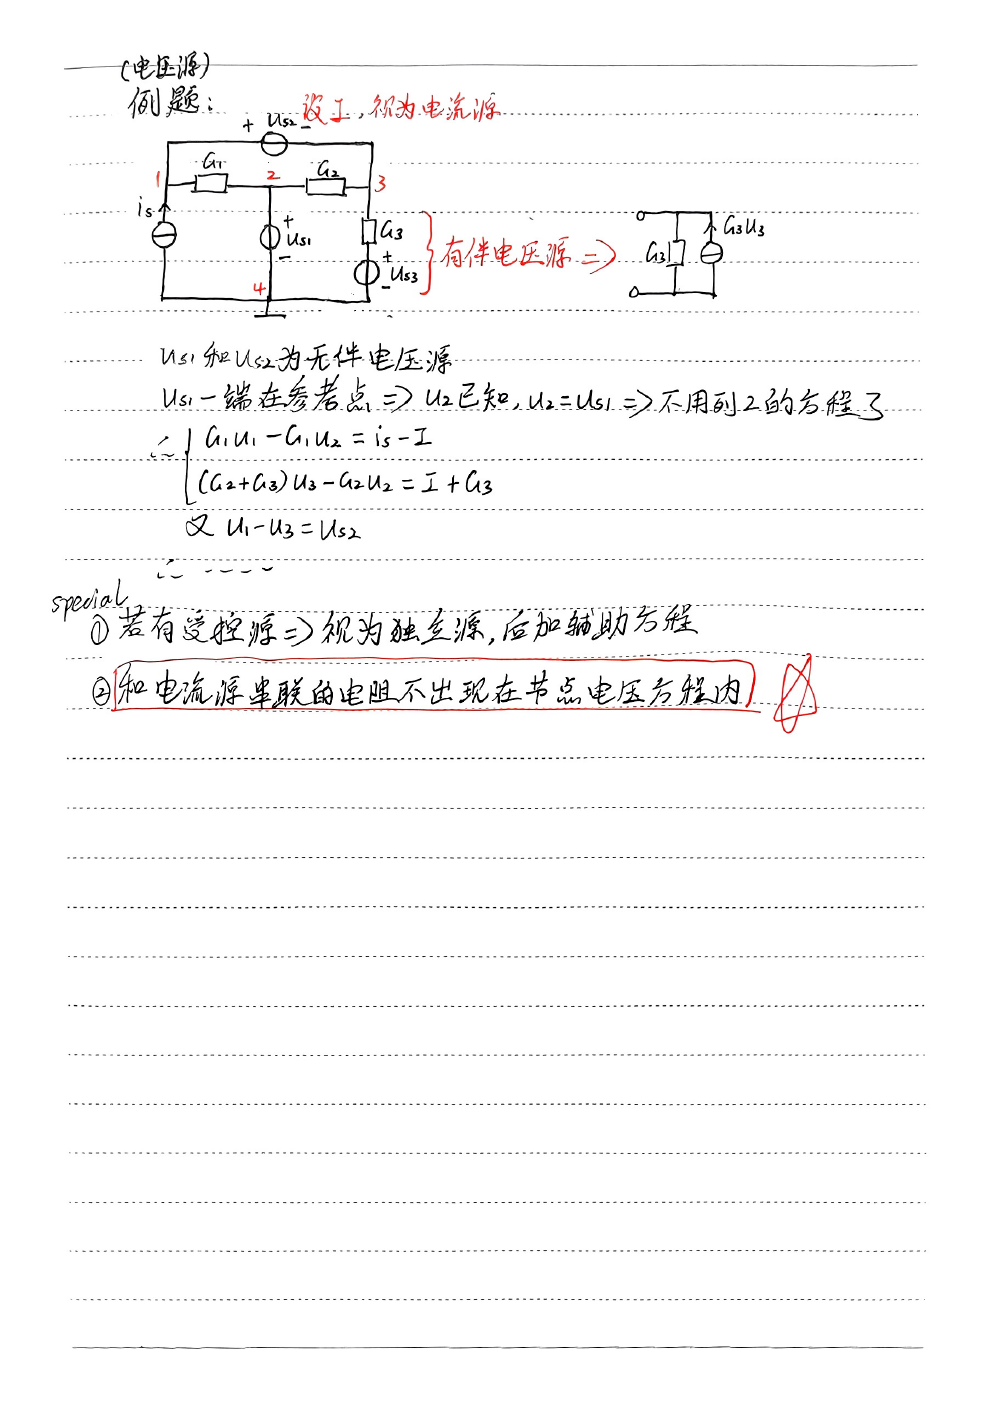 (电压源)
例题:
设I,视为电流源
+ Us2 -
G1
G2
1
2
3
is
+
Us1
-
G3
+
Us3
-
4
有伴电压源 ⇒
G3
G3U3
Us1和Us2为无伴电压源
Us1一端在参考点 ⇒ U2已知, U2=Us1 ⇒ 不用列2的方程了
G1U1-G1U2=is-I
(G2+G3)U3-G2U2=I+G3
又 U1-U3=Us2
special
①若有受控源⇒视为独立源,后加辅助方程
②和电流源串联的电阻不出现在节点电压方程内